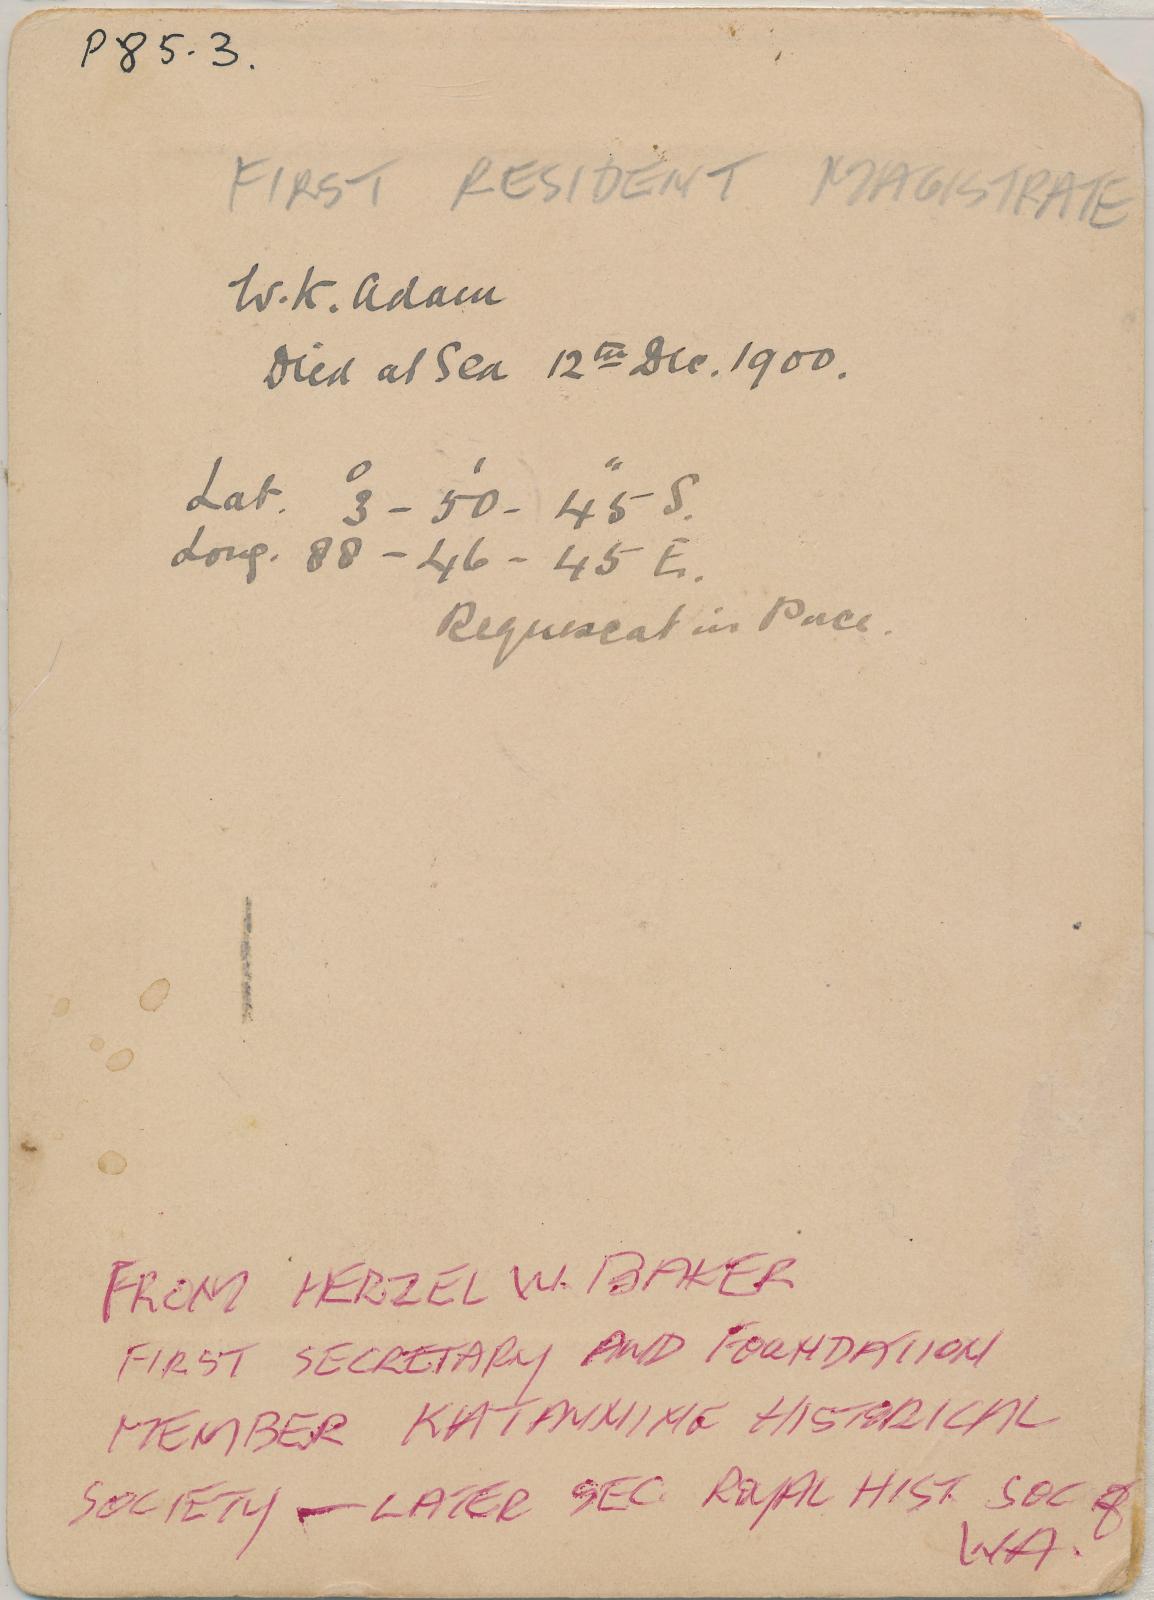 P85.3.
FIRST RESIDENT MAGISTRATE
W.K. Adam
Died at Sea 12th Dec. 1900.
Lat. 3° - 50' - 45" S.
Long. 88 - 46 - 45 E.
Requiescat in Pace.
FROM HERZEL W. BAKER
FIRST SECRETARY AND FOUNDATION
MEMBER KATANNING HISTORICAL
SOCIETY — LATER SEC. ROYAL HIST. SOC of
WA.